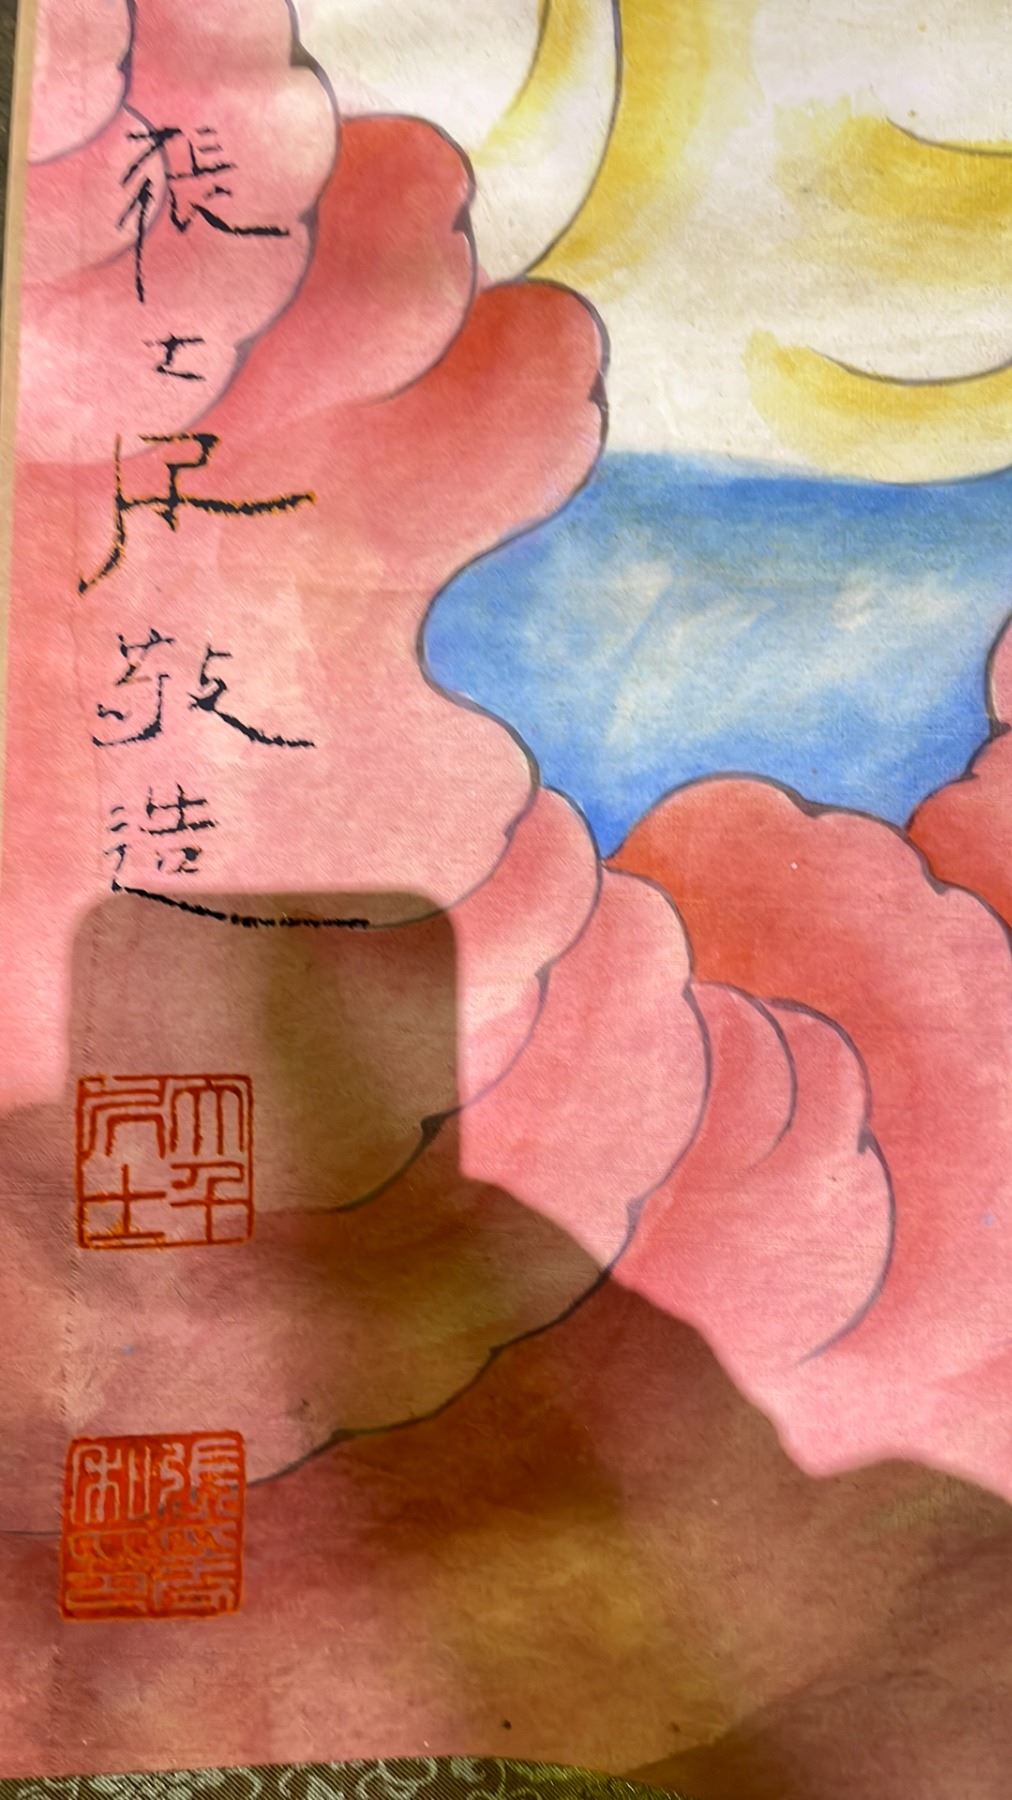 張士居敬造
大千居士
張爰私印